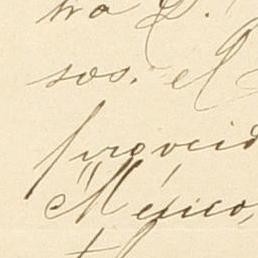 tra D.
sos. el
proveid
"México,